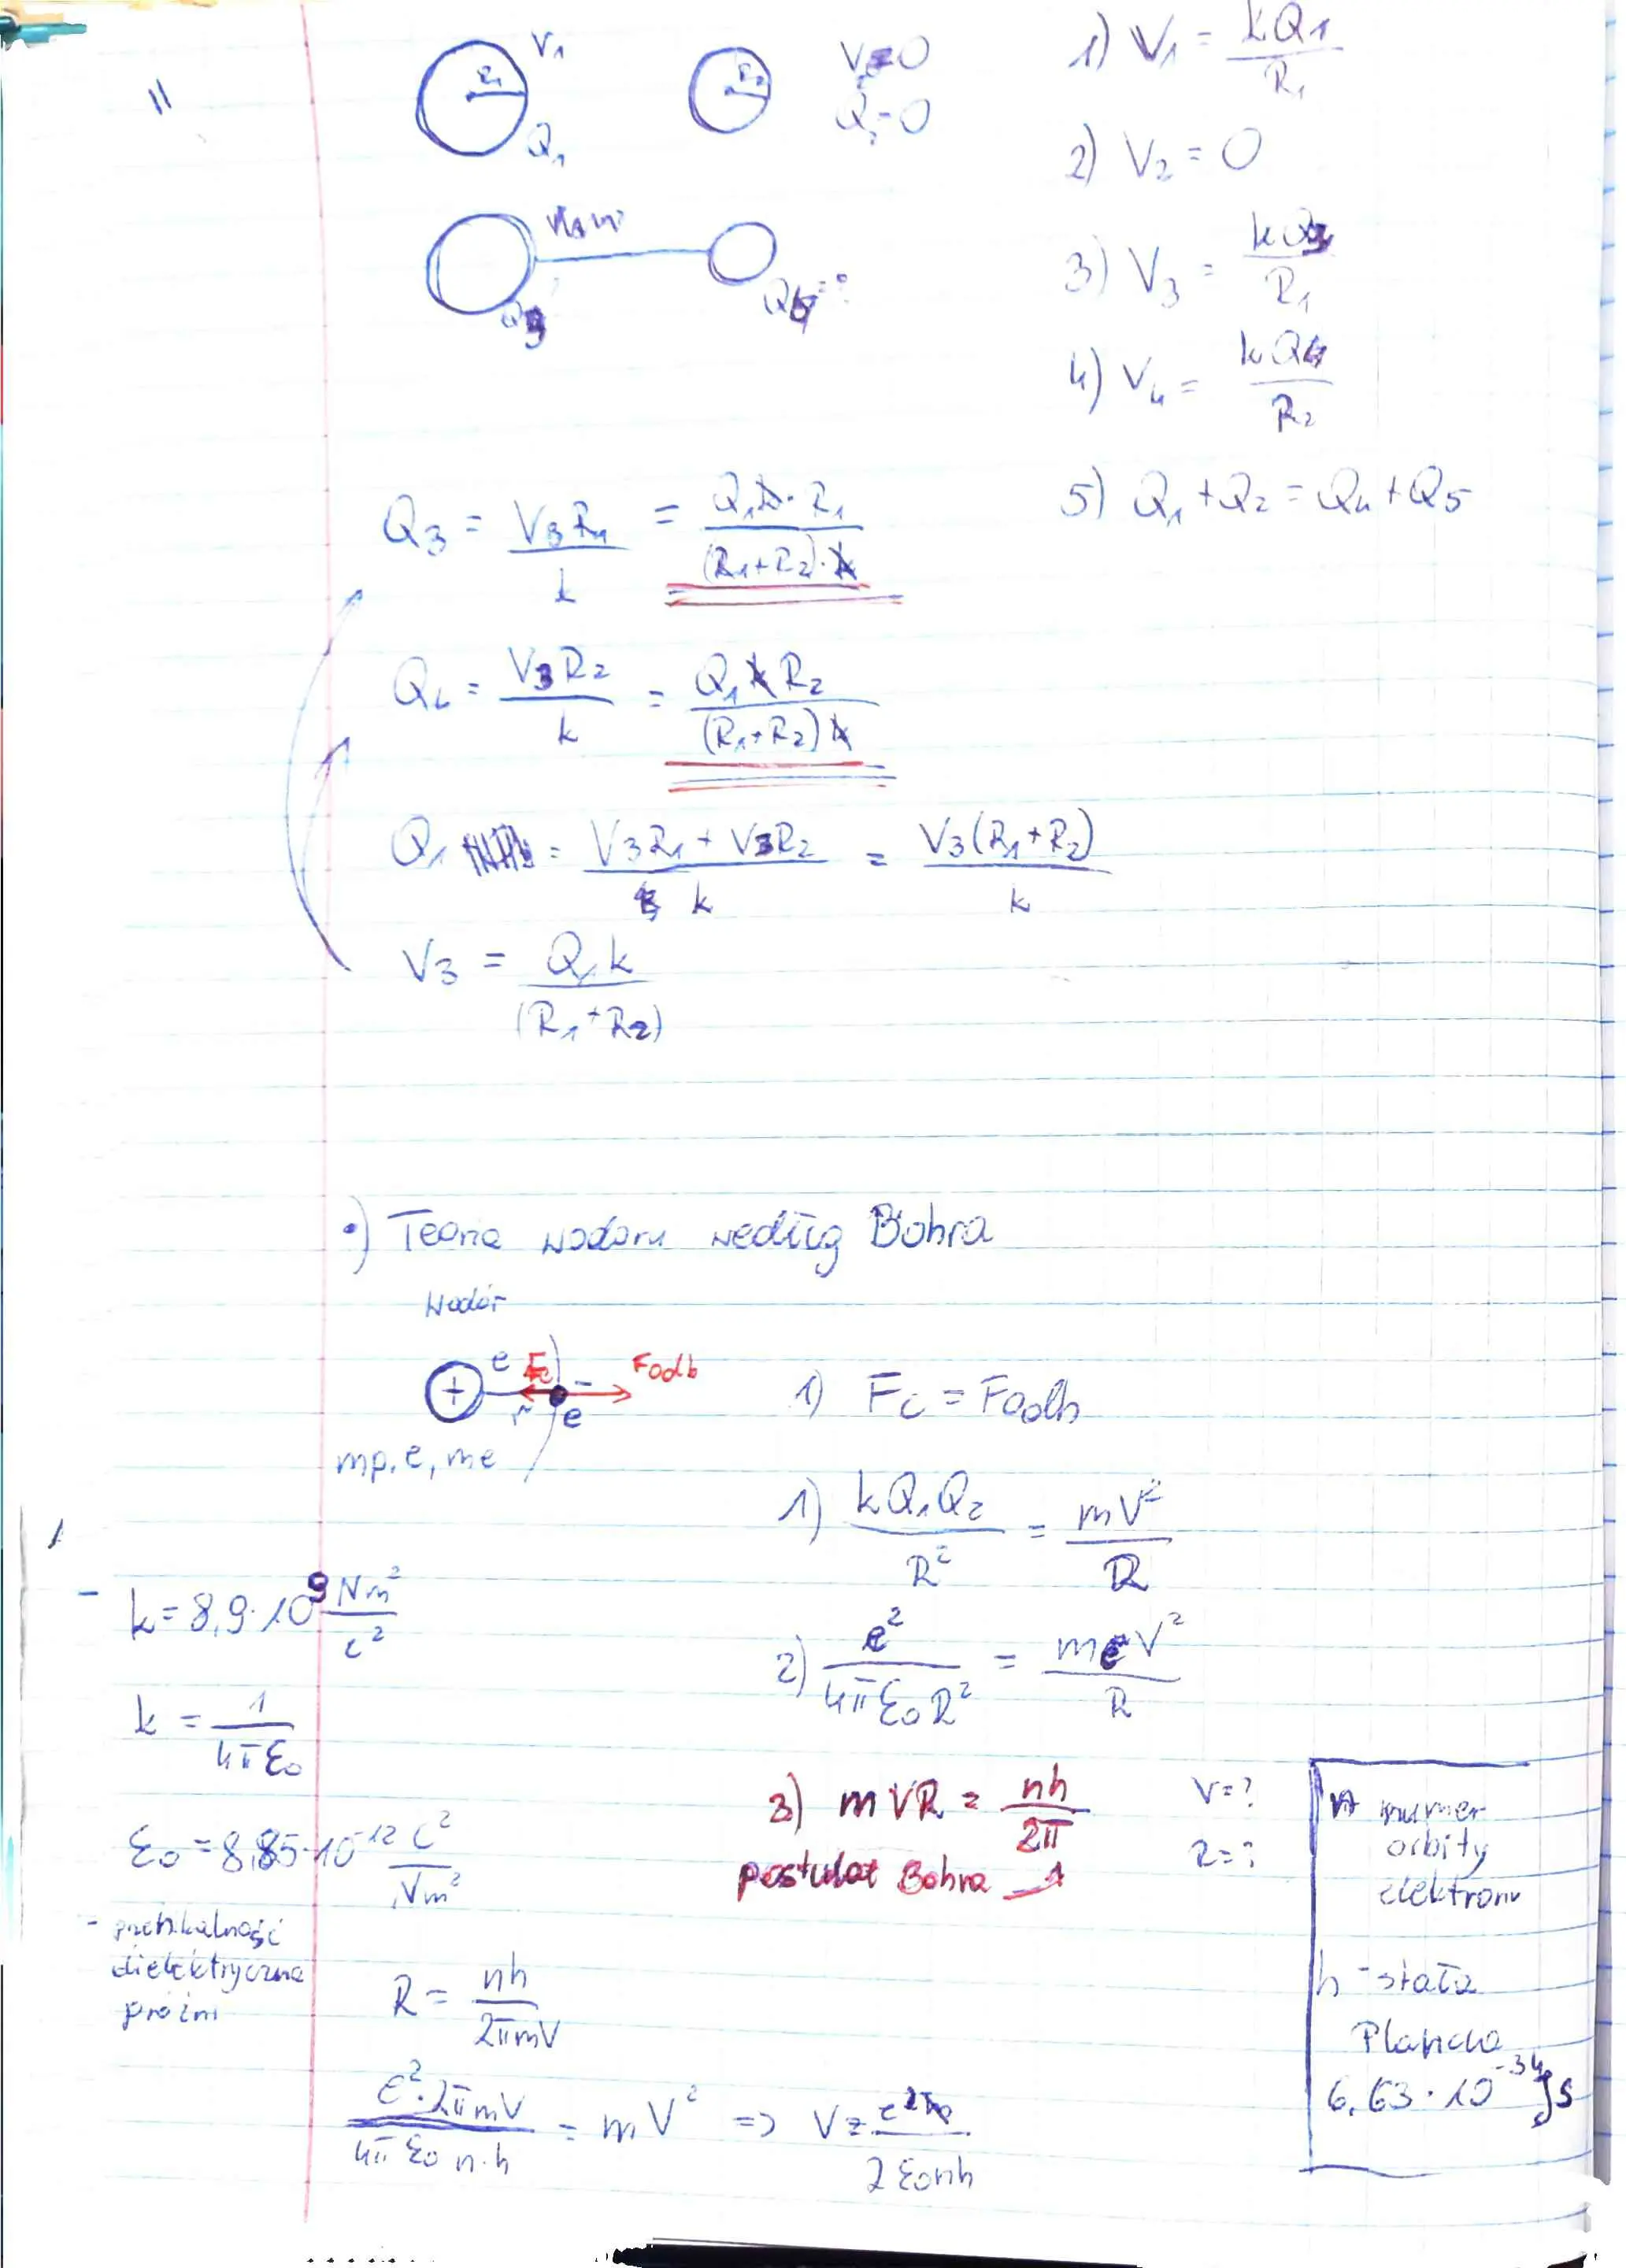 V₁
R₁
Q₁
R₂
V₂=0
Q₂=0
1) V₁ = kQ₁/R₁
2) V₂ = 0
3) V₃ = kQ₃/R₁
4) V₄ = kQ₄/R₂
5) Q₁+Q₂ = Q₄+Q₅
Q₃ = V₃R₁/k = Q₁k·R₁/(R₁+R₂)·k
Q₄ = V₃R₂/k = Q₁kR₂/(R₁+R₂)k
Q₁ = V₃R₁ + V₃R₂/k = V₃(R₁+R₂)/k
V₃ = Q₁k/(R₁+R₂)
•) Teoria wodoru według Bohra
Wodór
e Fc Fodb
+ r - e
mp, e, me
1) Fc = Fodb
1) kQ₁Q₂/R² = mV²/R
k = 8,9·10⁹ Nm²/c²
2) e²/4πε₀R² = meV²/R
k = 1/4πε₀
3) mVR = nh/2π
postulat Bohra
V=?
R=?
n numer
orbity
elektronu
h - stała
Plancka
6,63·10⁻³⁴ Js
ε₀ = 8,85·10⁻¹² C²/Nm²
- przenikalność
dielektryczna
próżni
R = nh/2πmV
e²·2πmV/4πε₀n·h = mV² => V = e²/2ε₀nh